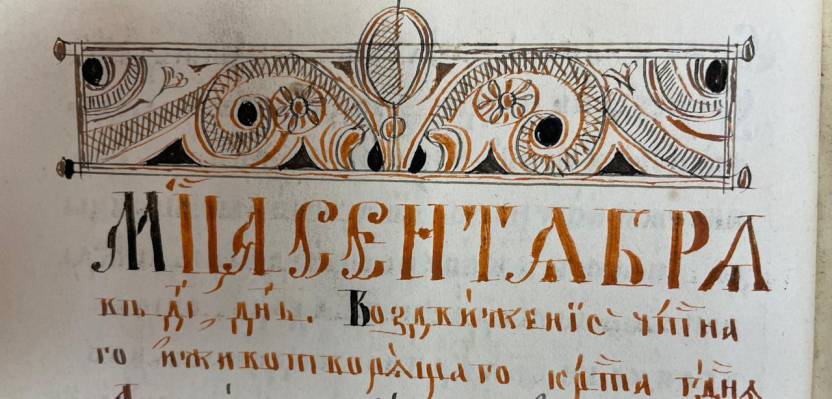 МЦ҃А СЕНТАБРѦ
къ д҃і, дн҃ь. Воздви́женїе чⷭ҇тна
го и҆животворѧ́щаго крⷭ҇та гдⷭ҇нѧ